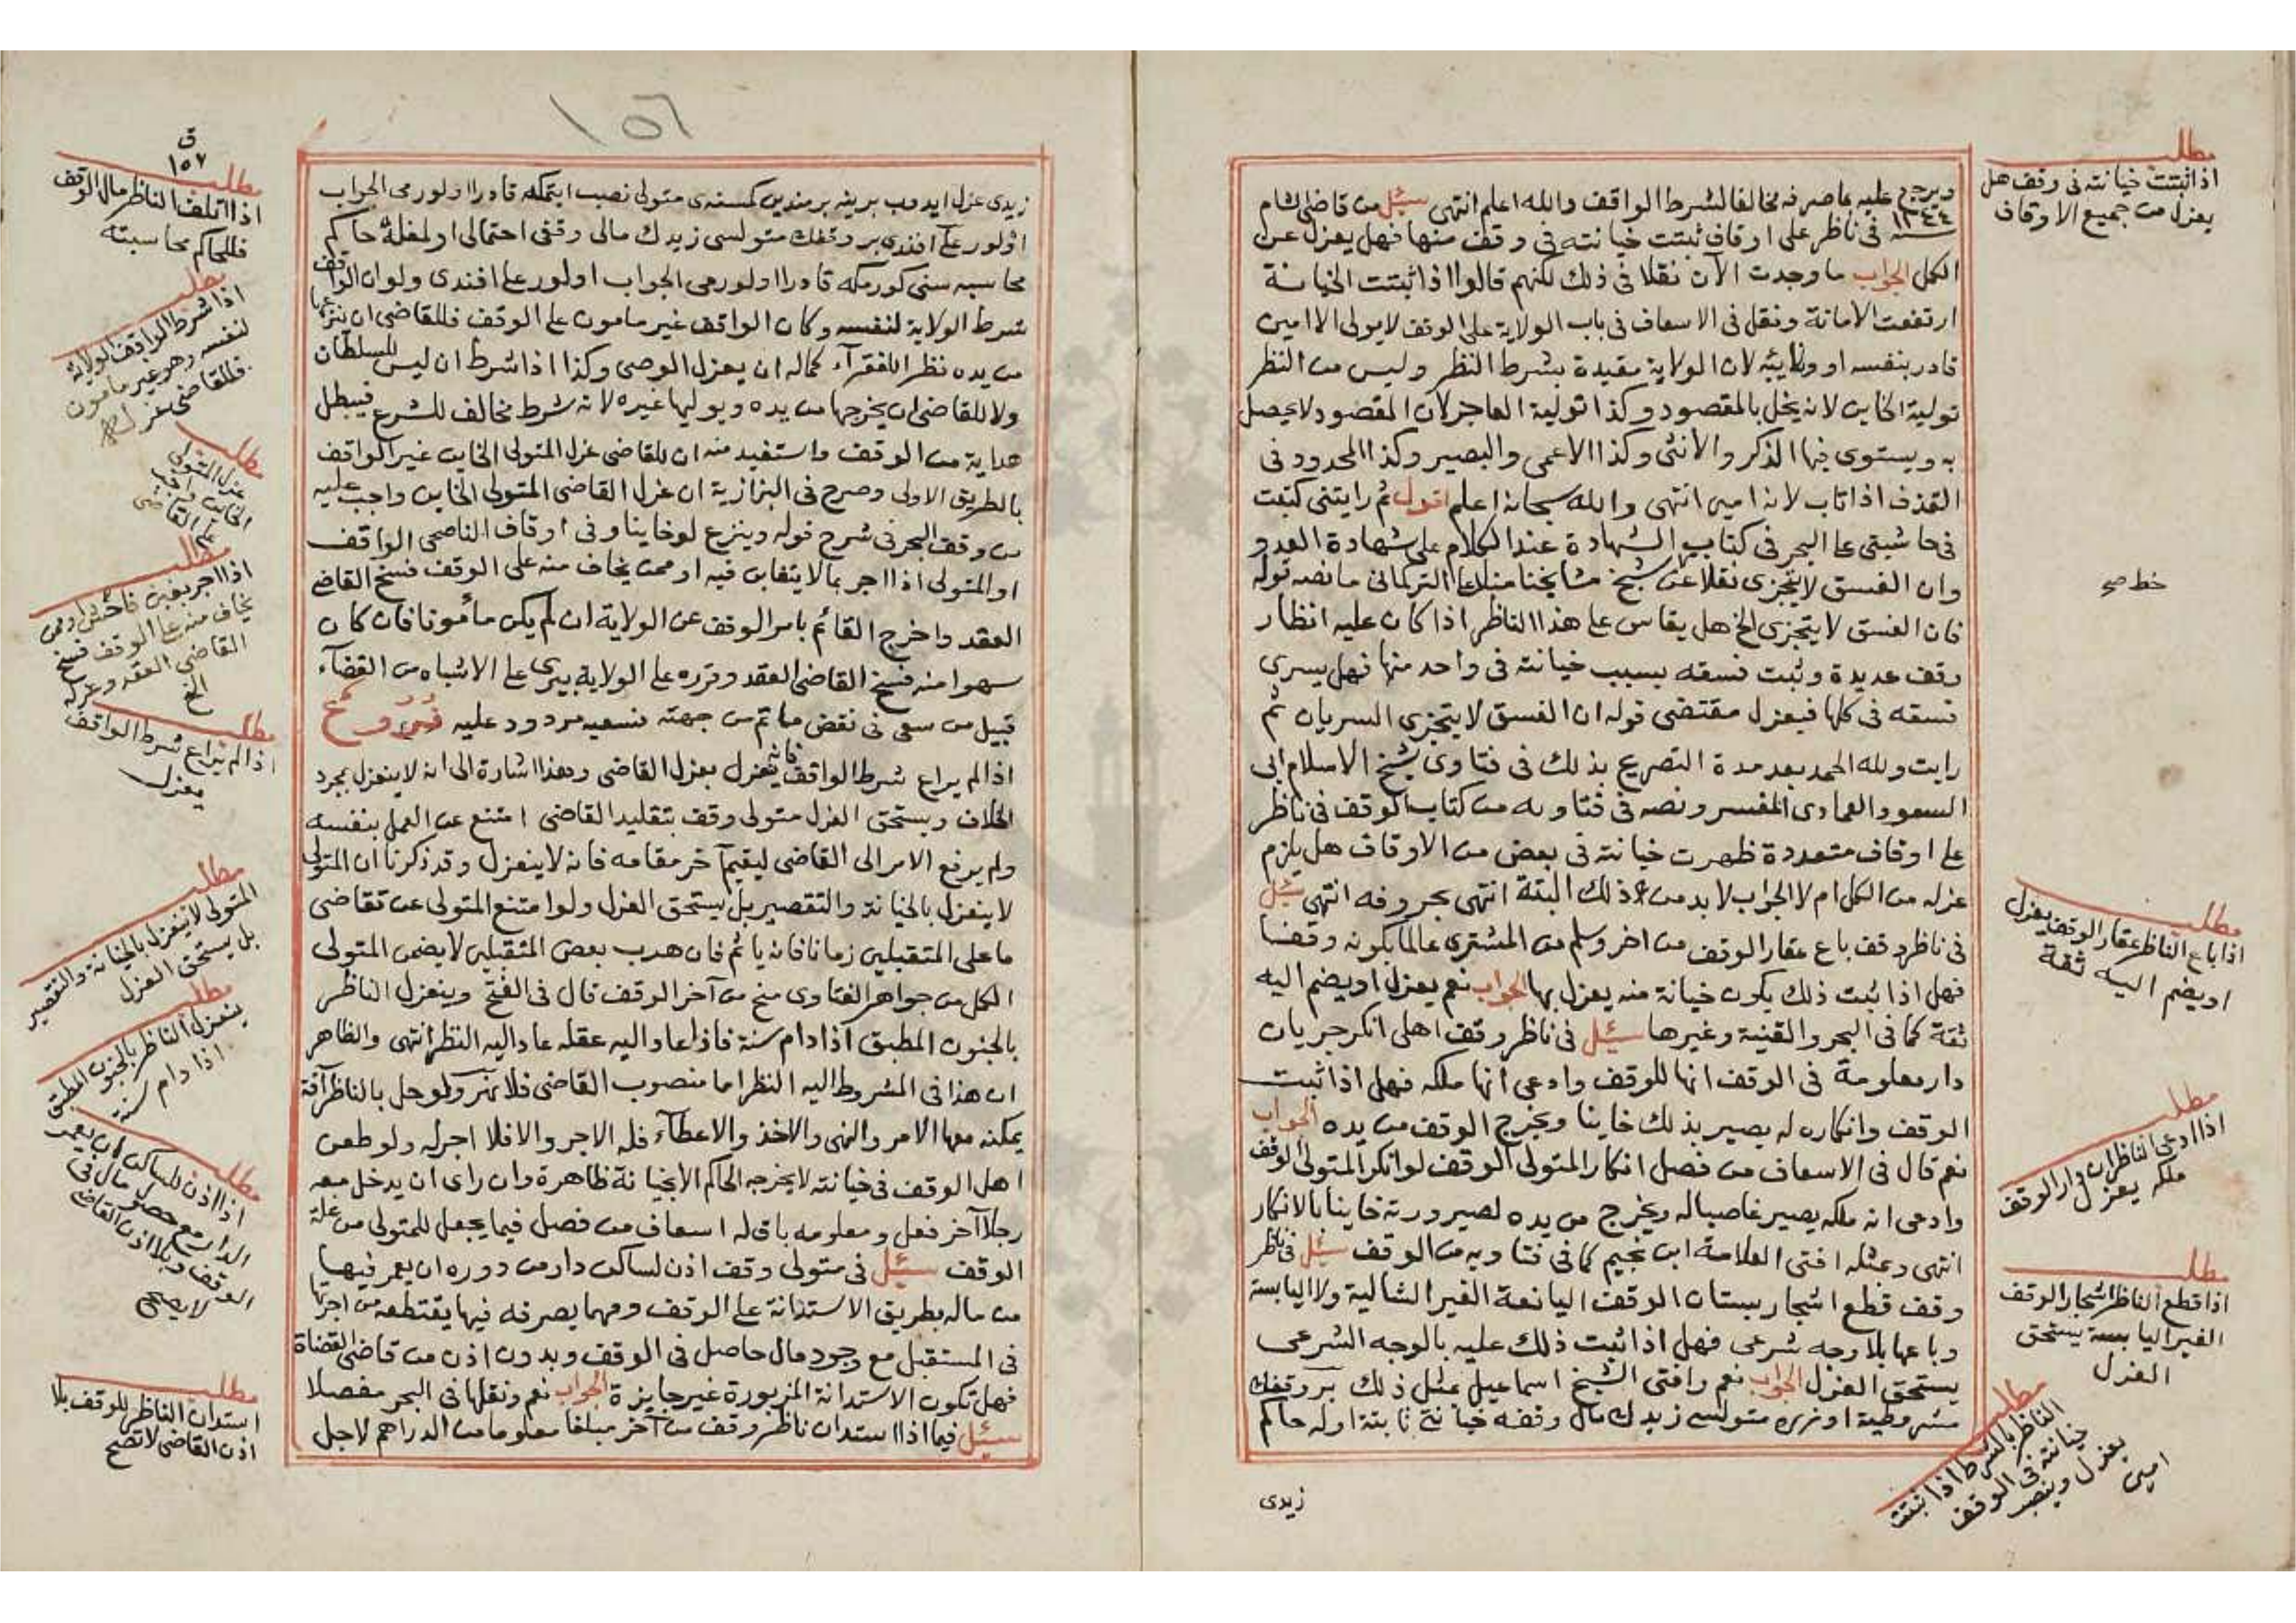 ويرجع عليه بما صرفه مخالفا لشرط الواقف والله اعلم انتهى سئل من قاضي الشام
سنة ١٢٤٤ في ناظر على اوقاف ثبتت خيانته في وقف منها فهل يعزل عن
الكل الجواب ما وجدت الآن نقلا في ذلك لكنهم قالوا اذا ثبتت الخيانة
ارتفعت الامانة ونقل في الاسعاف في باب الولاية على الوقف لا يولى الا امين
قادر بنفسه او ونايبه لان الولاية مقيدة بشرط النظر وليس من النظر
تولية الخاين لانه يخل بالمقصود وكذا تولية العاجز لان المقصود لا يحصل
به ويستوى فيها الذكر والأنثى وكذا الاعمى والبصير وكذا المحدود في
القذف اذا تاب لانه امين انتهى والله سبحانه اعلم اقول ثم رايتنى كتبت
في حاشيتي على البحر في كتاب الشهادة عند الكلام على شهادة العدو
وان الفسق لا يتجزى نقلا عن شيخ مشايخنا منلا على التركمانى ما نصه قوله
فان الفسق لا يتجزى الخ هل يقاس على هذا الناظر اذا كان عليه انظار
وقف عديدة وثبت فسقه بسبب خيانته في واحد منها فهل يسرى
فسقه في كلها فيعزل مقتضى قوله ان الفسق لا يتجزى السريان ثم
رايت ولله الحمد بعد مدة التصريح بذلك في فتاوى شيخ الاسلام ابى
السعود العمادى المفسر ونصه في فتاويه من كتاب الوقف في ناظر
على اوقاف متعددة ظهرت خيانته في بعض من الاوقاف هل يلزم
عزله من الكل ام لا الجواب لا بد من ذلك البتة انتهى بحروفه انتهى سئل
في ناظر وقف باع عقار الوقف من اخر وسلم من المشترى عالما بكونه وقفا
فهل اذا ثبت ذلك يكون خيانة منه يعزل بها الجواب نعم يعزل او يضم اليه
ثقة كما في البحر والقنية وغيرها سئل في ناظر وقف اهلى انكر جريان
دار معلومة في الوقف انها للوقف وادعى انها ملكه فهل اذا ثبت
الوقف وانكاره له يصير بذلك خاينا ويخرج الوقف من يده الجواب
نعم قال في الاسعاف من فصل انكار المتولى الوقف لو انكر المتولى الوقف
وادعى انه ملكه يصير غاصبا له ويخرج من يده لصيرورته خاينا بالانكار
انتهى وبمثله افتى العلامة ابن نجيم كما في فتاويه من الوقف سئل في ناظر
وقف قطع اشجار بستان الوقف اليانعة الغير الشالية ولا اليابسة
وباعها بلا وجه شرعى فهل اذا ثبت ذلك عليه بالوجه الشرعى
يستحق العزل الجواب نعم وافتى الشيخ اسماعيل بمثل ذلك بر وقفك
مشروطيت اوزره متوليسى زيدك مال وقفه خيانتى ثابته اولسه حاكم
زيدى
مطلب
اذا ثبتت خيانته في وقف هل
يعزل من جميع الاوقاف
خط صح
مطلب
اذا باع الناظر عقار الوقف يعزل
او يضم اليه ثقة
مطلب
اذا ادعى الناظر ان دار الوقف
ملكه يعزل
مطلب
اذا قطع الناظر اشجار الوقف
الغير اليابسة يستحق
العزل
مطلب
الناظر بالشرط اذا ثبتت
خيانته في الوقف
يعزل وينصب
امين
١٥٦
زيدى عزل ايدوب يرينه برمندين كمسنه ى متولى نصب ايتمكه قادر اولور مى الجواب
اولور على افندى بر وقفك متوليسى زيدك مالى وقفى احتمالى اولمغله حاكم
محاسبه سنى كورمكه قادر اولور مى الجواب اولور على افندى ولو ان الواقف
شرط الولاية لنفسه وكان الواقف غير مامون على الوقف فللقاضى ان ينزعها
من يده نظرا للفقرآء كما له ان يعزل الوصى وكذا اذا شرط ان ليس للسلطان
ولا للقاضى ان يخرجها من يده ويوليها غيره لانه شرط مخالف للشرع فيبطل
هداية من الوقف واستفيد منه ان للقاضى عزل المتولى الخاين غير الواقف
بالطريق الاولى وصرح في البزازية ان عزل القاضى المتولى الخاين واجب عليه
من وقف البحر في شرح قوله وينزع لو خاينا وفي اوقاف الناصحى الواقف
او المتولى اذا اجر بما لا يتغابن فيه او ممن يخاف منه على الوقف فسخ القاضى
العقد واخرج القائم بامر الوقف عن الولاية ان لم يكن مأمونا فان كان
سهوا منه فسخ القاضى العقد وقرره على الولاية بيرى على الاشباه من القضآء
قبيل من سعى في نقض ما تم من جهته فسعيه مردود عليه
اذا لم يراع شرط الواقف فانه يعزل بعزل القاضى وهذا اشارة الى انه لا ينعزل بمجرد
الخلاف ويستحق العزل متولى وقف بتقليد القاضى امتنع عن العمل بنفسه
ولم يرفع الامر الى القاضى ليقيم آخر مقامه فانه لا ينعزل وقد ذكرنا ان المتولى
لا ينعزل بالخيانة والتقصير بل يستحق العزل ولو امتنع المتولى عن تقاضى
ما على المتقبلين زمانا فانه ياثم فان هرب بعض المتقبلين لا يضمن المتولى
الكل من جواهر الفتاوى منح من آخر الوقف قال في الفتح وينعزل الناظر
بالجنون المطبق اذا دام سنة فاذا عاد اليه عقله عاد اليه النظر انتهى والظاهر
ان هذا في المشروط اليه النظر اما منصوب القاضى فلا نهر ولو حل بالناظر آفة
يمكنه معها الامر والنهى والاخذ والاعطآء فله الاجر والا فلا اجر له ولو طعن
اهل الوقف في خيانته لا يخرجه الحاكم الا بخيانة ظاهرة وان راى ان يدخل معه
رجلا آخر فعل ومعلومه باق له اسعاف من فصل فيما يجعل للمتولى من غلة
الوقف سئل في متولى وقف اذن لساكن دار من دوره ان يعمر فيها
من ماله بطريق الاستدانة على الوقف ومهما يصرفه فيها يقتطعه من اجرتها
في المستقبل مع وجود مال حاصل في الوقف وبدون اذن من قاضى القضاة
فهل تكون الاستدانة المزبورة غير جايزة الجواب نعم ونقلها في البحر مفصلا
سئل فيما اذا استدان ناظر وقف من آخر مبلغا معلوما من الدراهم لاجل
ق
١٥٧
مطلب
اذا اتلف الناظر مال الوقف
فللحاكم محاسبته
مطلب
اذا شرط الواقف الولاية
لنفسه وهو غير مامون
فللقاضى عزله
مطلب
عزل المتولى
الخاين واجب
على القاضى
مطلب
اذا اجر بغبن فاحش او ممن
يخاف منه على الوقف فسخ
القاضى العقد وعزله
الخ
مطلب
اذا لم يراع شرط الواقف
يعزل
مطلب
المتولى لا ينعزل بالخيانة والتقصير
بل يستحق العزل
مطلب
ينعزل الناظر بالجنون المطبق
اذا دام سنة
مطلب
اذا اذن للساكن ان يعمر
الدار مع حصول مال في
الوقف وبلا اذن القاضى
لا يصح
مطلب
استدان الناظر للوقف بلا
اذن القاضى لا تصح